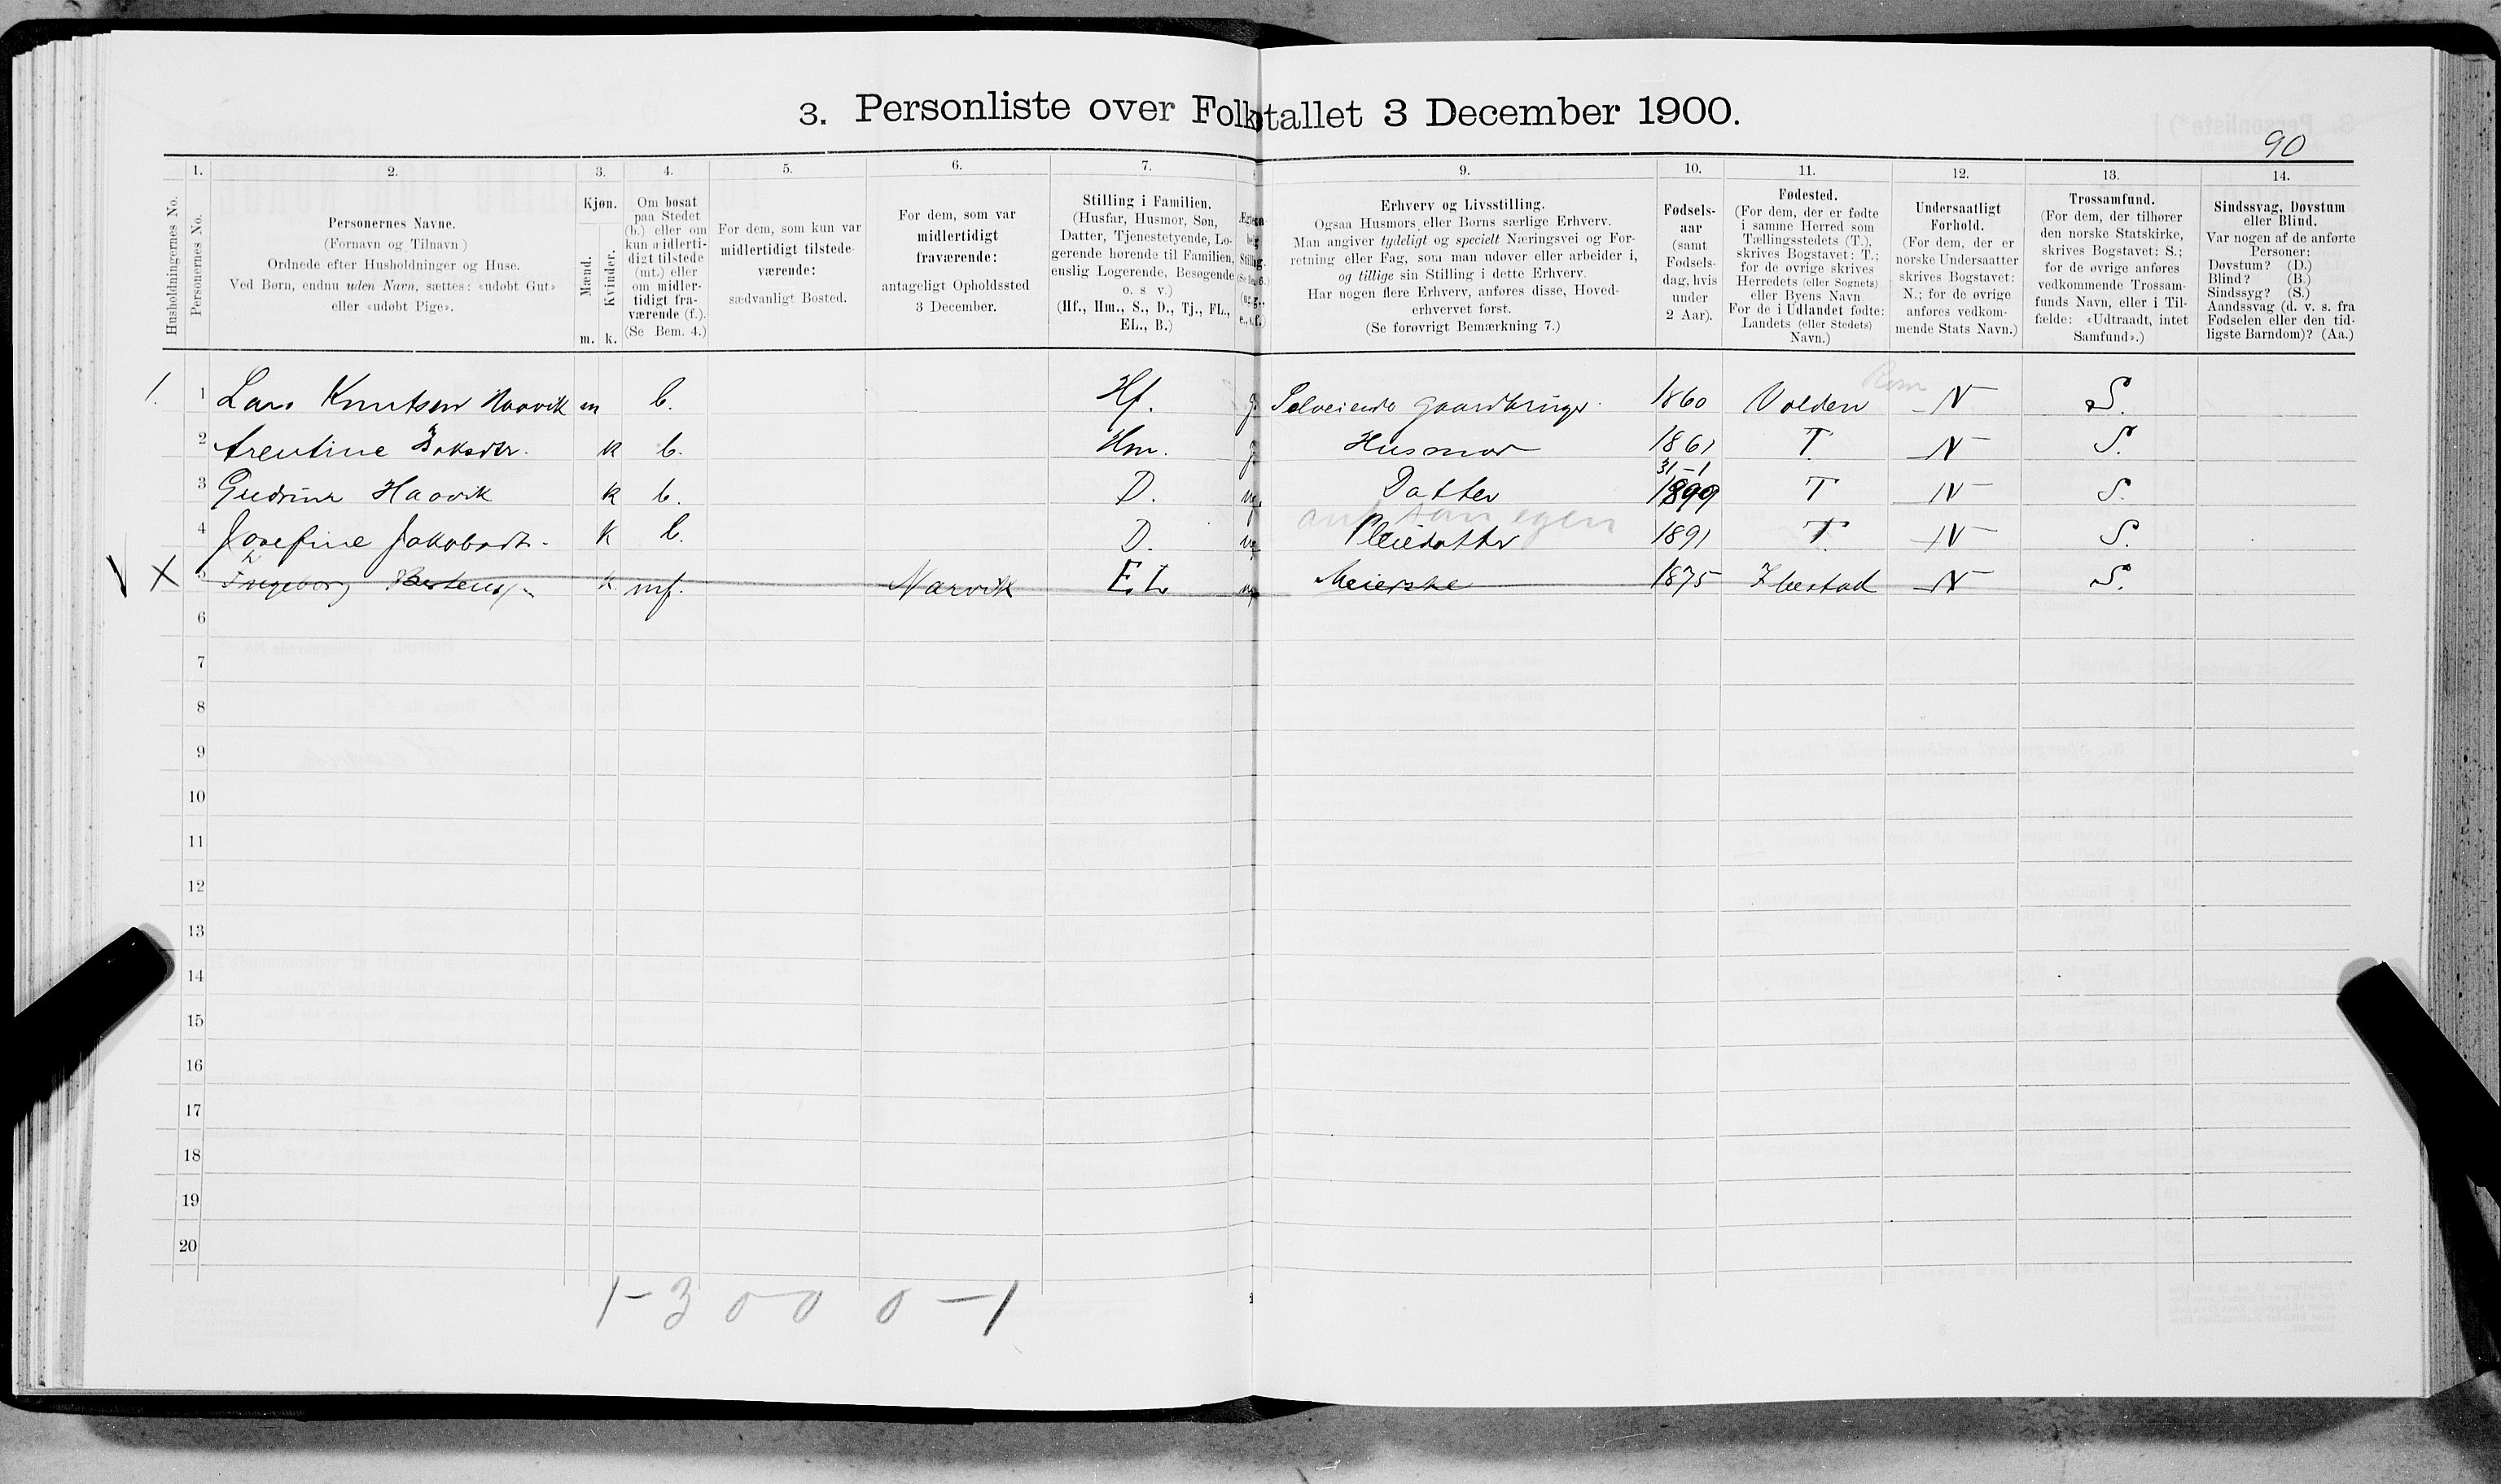 3. Personliste over Folketallet 3 December 1900.
90
Husholdningernes No.
1.
Personernes No.
2.
Personernes Navne.
(Fornavn og Tilnavn)
Ordnede efter Husholdninger og Huse.
Ved Børn, endnu uden Navn, sættes: «udøbt Gut»
eller «udøbt Pige».
3.
Kjøn.
Mænd.
Kvinder.
m. k.
4.
Om bosat
paa Stedet
(b.) eller om
kun midlerti-
digt tilstede
(mt.) eller
om midler-
tidigt fra-
værende (f.).
(Se Bem. 4.)
5.
For dem, som kun var
midlertidigt tilstede-
værende:
sædvanligt Bosted.
6.
For dem, som var
midlertidigt
fraværende:
antageligt Opholdssted
3 December.
7.
Stilling i Familien.
(Husfar, Husmor, Søn,
Datter, Tjenestetyende, Lo-
gerende hørende til Familien,
enslig Logerende, Besøgende
o. s v.)
(Hf., Hm., S., D., Tj., FL.,
EL., B.)
9.
Erhverv og Livsstilling.
Ogsaa Husmors eller Børns særlige Erhverv.
Man angiver tydeligt og specielt Næringsvei og For-
retning eller Fag, som man udøver eller arbeider i,
og tillige sin Stilling i dette Erhverv.
Har nogen flere Erhverv, anføres disse, Hoved-
erhvervet først.
(Se forøvrigt Bemærkning 7.)
10.
Fødsels-
aar
(samt
Fødsels-
dag, hvis
under
2 Aar).
11.
Fødested.
(For dem, der er fødte
i samme Herred som
Tællingsstedets (T.),
skrives Bogstavet: T.;
for de øvrige skrives
Herredets (eller Sognets)
eller Byens Navn
For de i Udlandet fødte:
Landets (eller Stedets)
Navn.)
12.
Undersaatligt
Forhold.
(For dem, der er
norske Undersaatter
skrives Bogstavet:
N.; for de øvrige
anføres vedkom-
mende Stats Navn.)
13.
Trossamfund.
(For dem, der tilhører
den norske Statskirke,
skrives Bogstavet: S.;
for de øvrige anføres
vedkommende Trossam-
funds Navn, eller i Til-
fælde: «Udtraadt, intet
Samfund».)
14.
Sindssvag, Døvstum
eller Blind.
Var nogen af de anførte
Personer:
Døvstum? (D.)
Blind? (B.)
Sindssyg? (S.)
Aandssvag (d. v. s. fra
Fødselen eller den tid-
ligste Barndom)? (Aa.)
1. 1 Lars Knutsen Haavik m b. Hf. g. Selveiende Gaardbruger 1860 Volden N S.
2 Arentine k b. Hm. g. Husmor 1861 T N S.
31-1
3 Gudrun Haavik k b. D. ug. Datter 1899 T N S.
4 Josefine Jakobsdt. k b. D. ug. Pleiedatter 1891 T. N S.
V X 5 Ingeborg k. mf. Narvik E.L. ug. Meierske 1875 Ibestad N S.
6
7
8
9
10
11
12
13
14
15
16
17
18
19
20
1-3 0 0 0-1